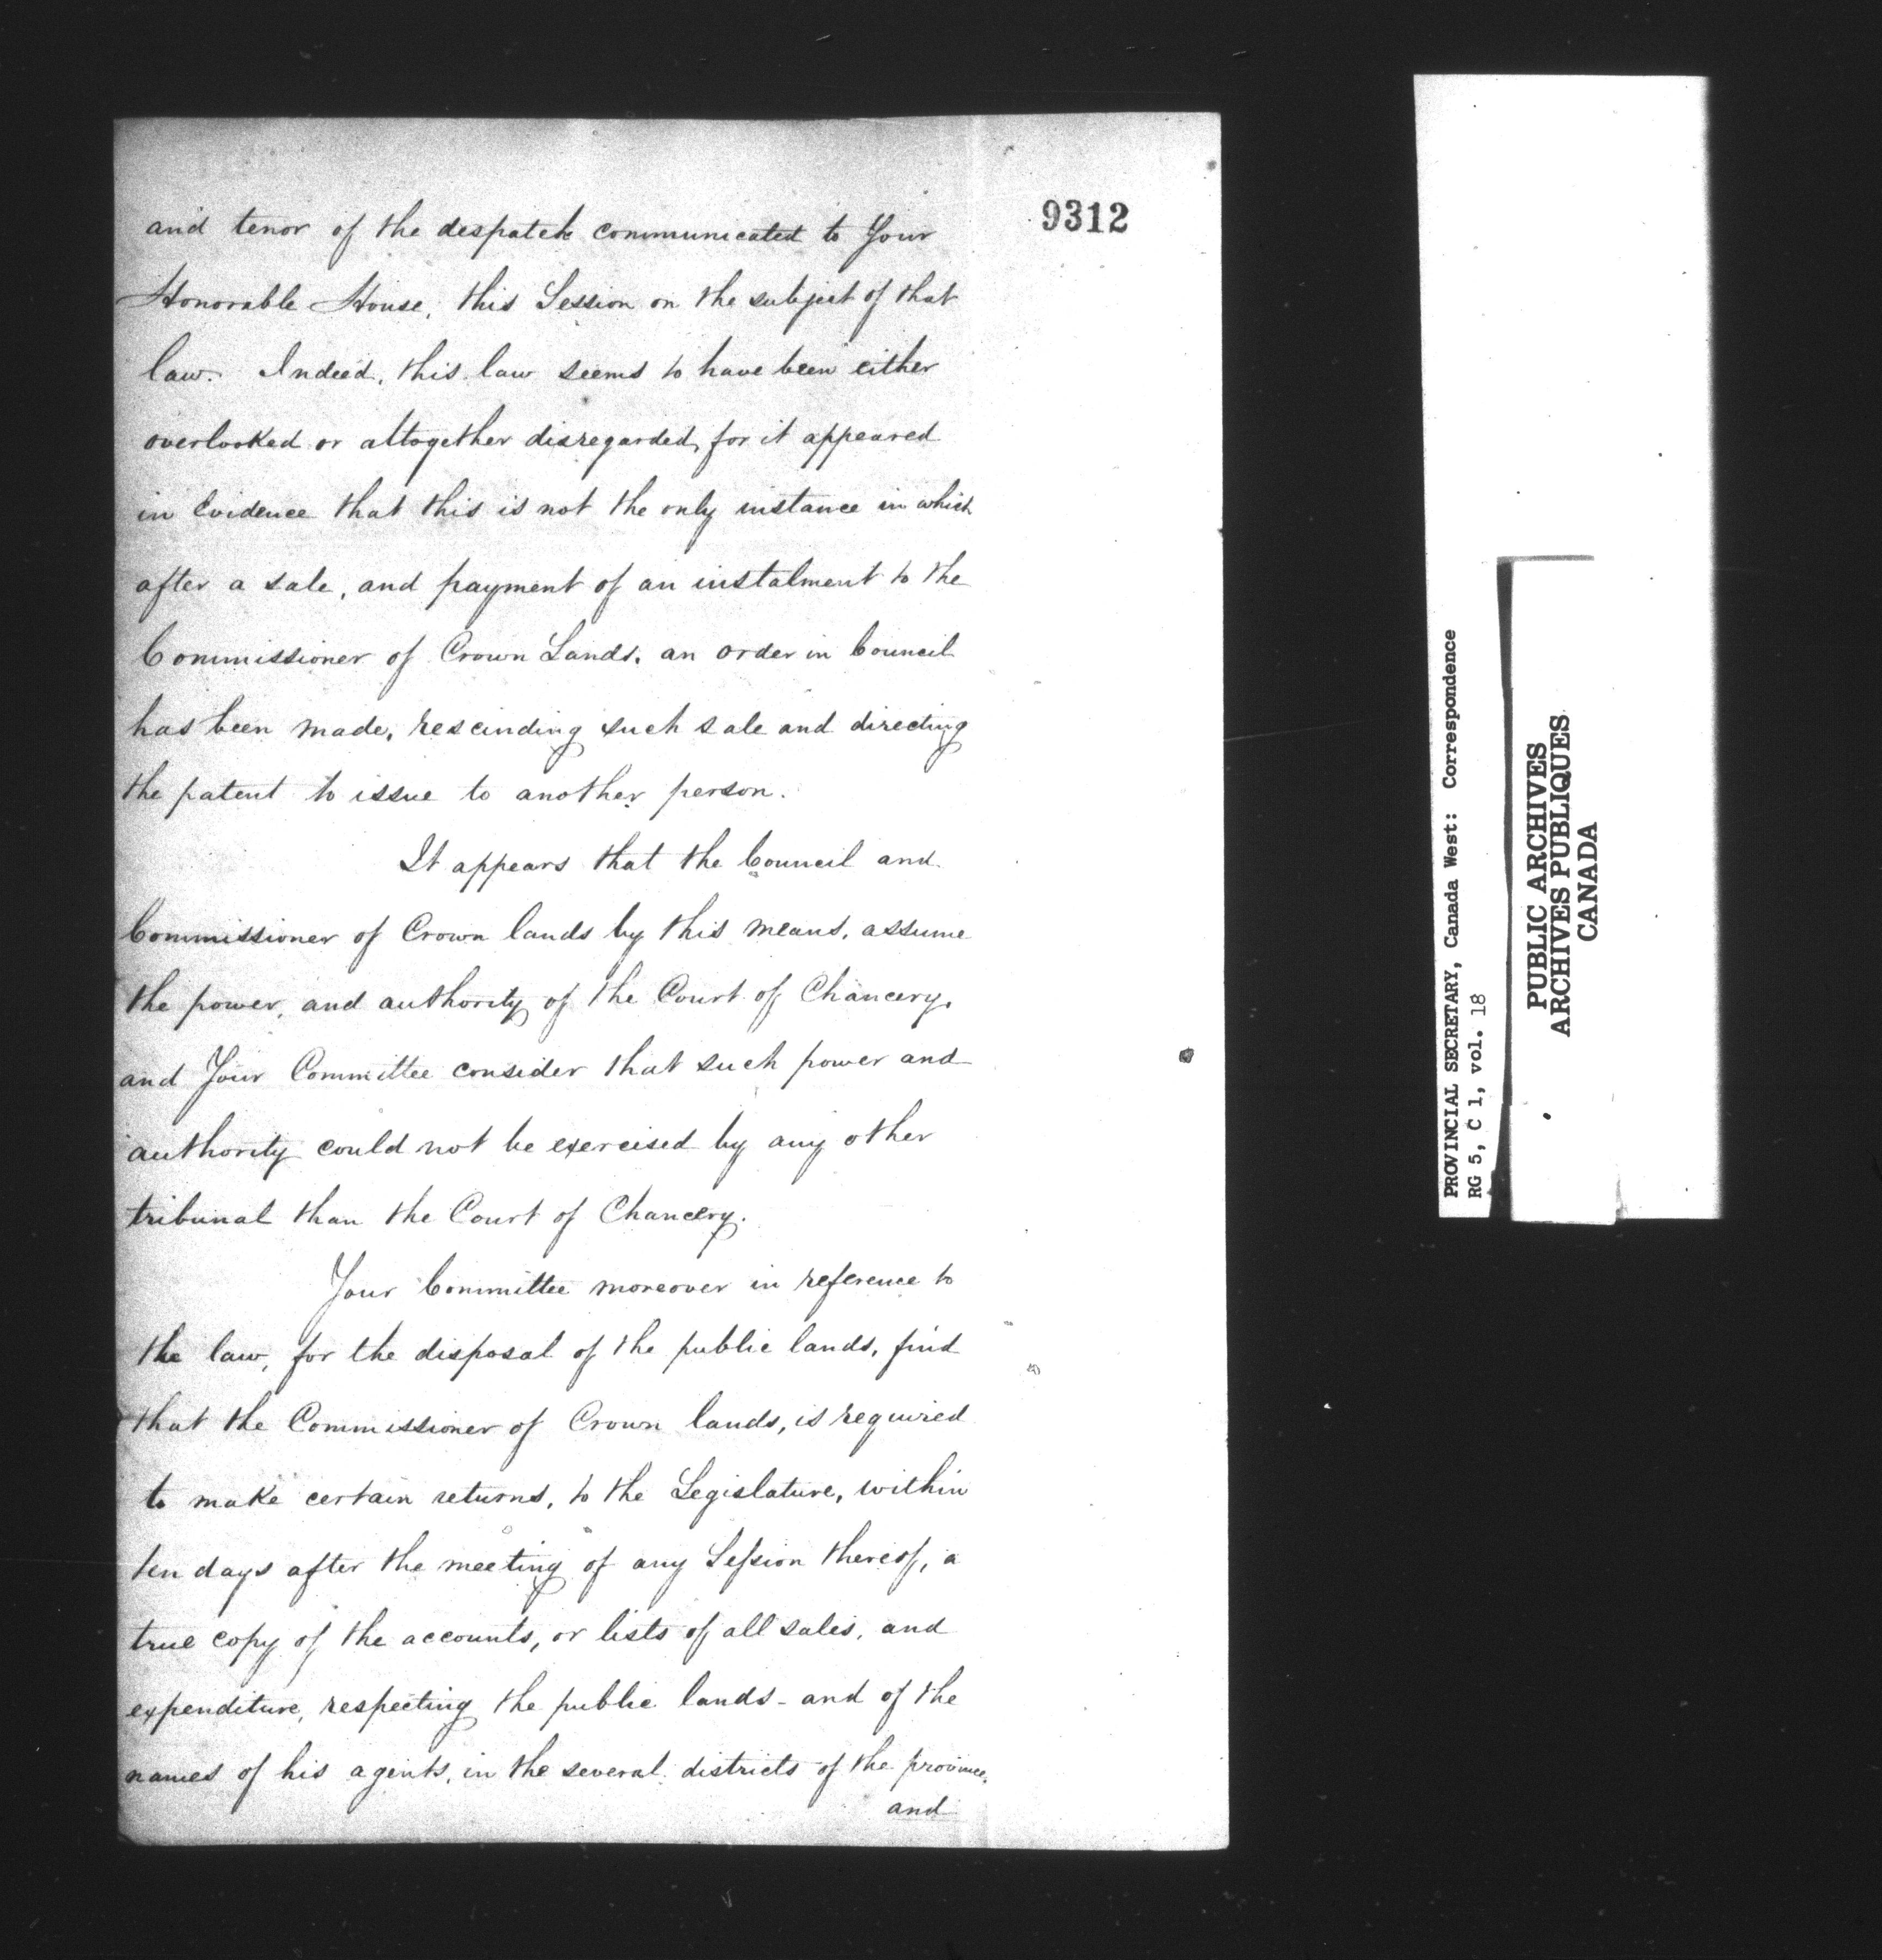 9312
and tenor of the despatch communicated to Your
Honorable House, this Session on the subject of that
law. Indeed, this law seems to have been either
overlooked or altogether disregarded, for it appeared
in Evidence that this is not the only instance in which
after a sale, and payment of an instalment to the
Commissioner of Crown Lands, an order in Council
has been made, rescinding such sale and directing
the patent to issue to another person.
It appears that the Council and
Commissioner of Crown lands by this means, assume
the power, and authority of the Court of Chancery,
and Your Committee consider that such power and
authority could not be exercised by any other
tribunal than the Court of Chancery.
Your Committee moreover in reference to
the law, for the disposal of the public lands, find
that the Commissioner of Crown lands, is required
to make certain returns, to the Legislature, within
ten days after the meeting of any Session thereof, a
true copy of the accounts, or lists of all sales, and
expenditure, respecting the public lands - and of the
names of his agents, in the several districts of the province,
and
PROVINCIAL SECRETARY, Canada West: Correspondence
RG 5, C 1, vol. 18
PUBLIC ARCHIVES
ARCHIVES PUBLIQUES
CANADA